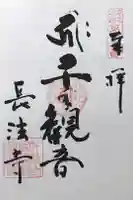 奉拝
千手観音
長法寺